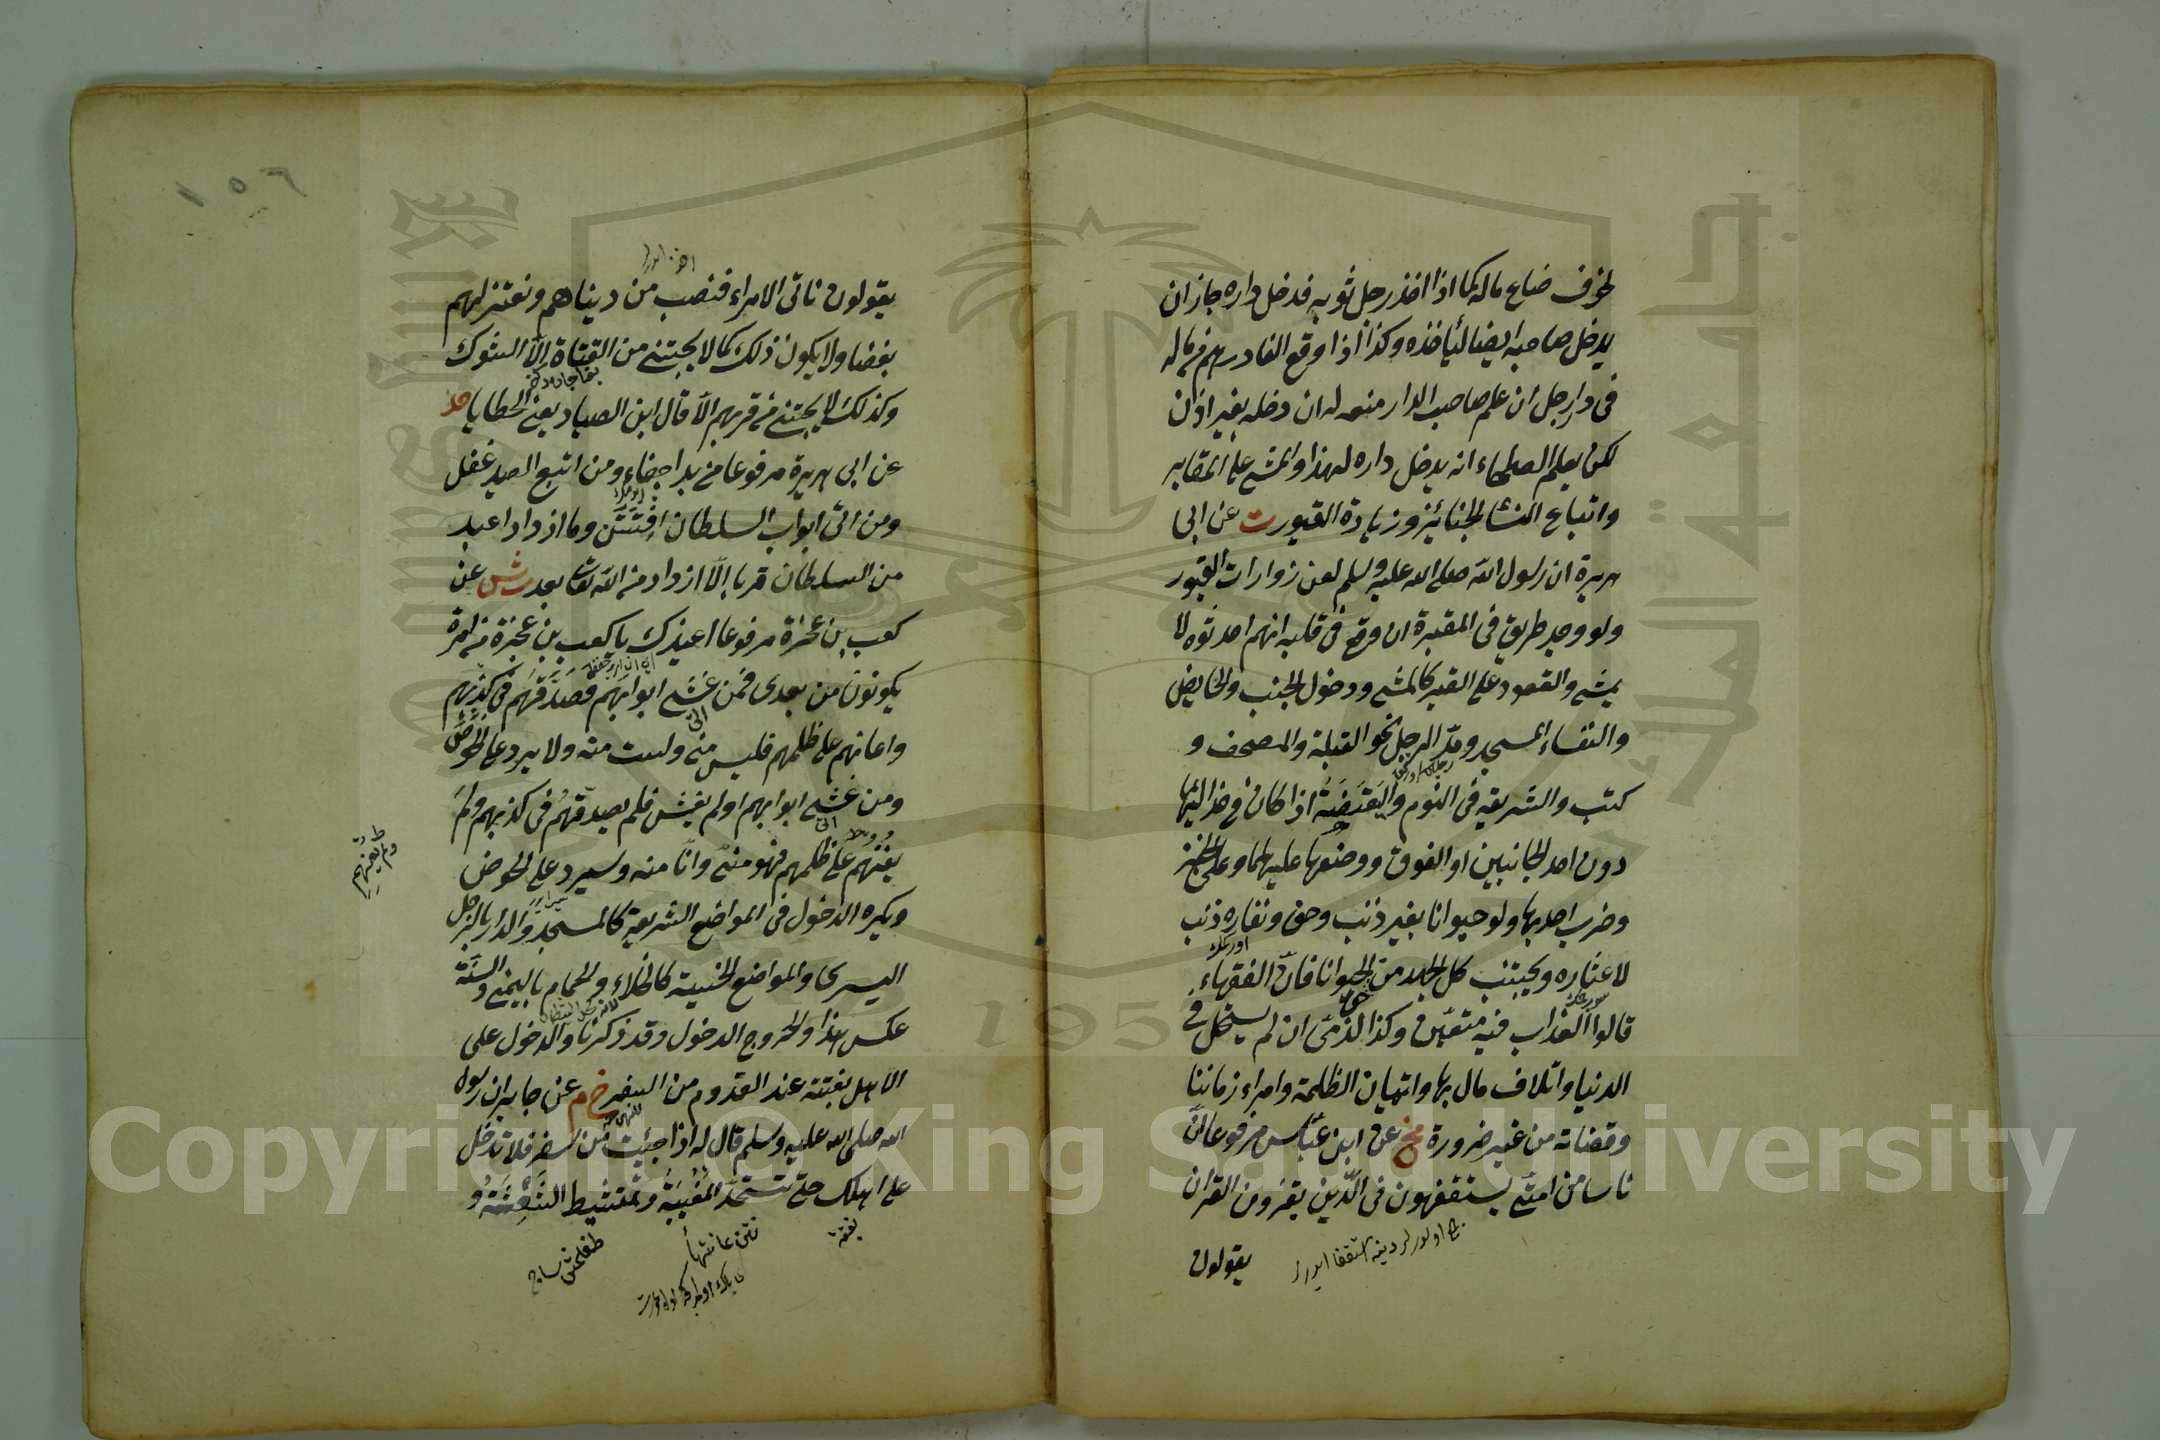 لخوف ضاع ماله كما اذا اخذ رجل ثوبه فدخل داره جاز ان
يدخل صاحبه ايضا ليأخذه وكذا اذا وقع الفا درهم من ماله
فى دار رجل ان علم صاحب الدار منعه له ان دخله بغير اذن
لكن يعلم الصلحاء انه يدخل داره لهذا والمشى على المقابر
واتباع النسا الجنائيز وزيارة القبور ت عن ابى
هريرة ان رسول الله صلى الله عليه وسلم لعن زوارات القبور
ولو وجد طريق فى المقبرة ان وقع فى قلبه انهم احدثوه لا
يمشى والقعود على القبر كالمشى ودخول الجنب والحايض
والنفساء المسجد ومدّ الرجل نحو القبلة والمصحف و
كتب والشريعه فى النوم واليقضة اذا كان فى حذاليها
دون احد الجانبين او الفوق ووضعها عليهما وعلى الخبز
وضرب احد بها ولو حيوانا بغير ذنب وحق ونفاره ذنب
لا عثاره ويجتنب كل الجد من الحيوانا فانّ الفقهاء
قالوا العذاب فيه متعين وكذا الذمى ان لم يستحل فى
الدنيا واتلاف مال بها واتيان الظلمة وامراء زماننا
وقضاته من غير ضرورة مج عن ابن عبّاس مرفوعا انّ
ناسا من امتى يستفقهون فى الدّين يقرؤن القران
يقولون
١٥٦
يقولون ناتى الامراء فنصب من ديناهم ونعتزلهم
بغضا ولا يكون ذلك كما لا يجتنى من القتاة الّا الشوك
وكذلك لا يجتنى من قربهم الّا قال ابن الصباد يعنى الخطايا حد
عن ابى هريرة مرفوعا من بدا جفاء ومن اتبع الصيد غفل
ومن اتى ابواب السلطان افتتن وما ازداد عبد
من السلطان قربا الّا ازداد من الله تعالى بعد ت س عن
كعب بن عجزة مرفوعا اعيذك يا كعب بن عجزة من امرة
يكونون من بعدى فمن غشى ابوابهم فصدّقهم فى كذبهم
واعانهم على ظلمهم فليس منى ولست منه ولا يرد على الحوض
ومن غشى ابوابهم او لم يغش فلم يصدقهم فى كذبهم ولم
يعنهم على ظلمهم فهو منى وانا منه وسيرد على الحوض
ولم يعنهم
ويكره الدخول فى المواضع الشريعة كالمسجد والدار بالرجل
اليسرى والمواضع الخبيثة كالخلاء والحمام باليمنى والسنة
عكس هذا والخروج الدخول وقد ذكرنا والدخول على
الاهل بغتة عند القدوم من السفر خ م عن جابر ان رسول
الله صلى الله عليه وسلم قال له اذا جئيت من سفر فلا تدخل
على اهلك حتى تستحدّ المغيبة وتمتشيط الشعثة و
بغتة